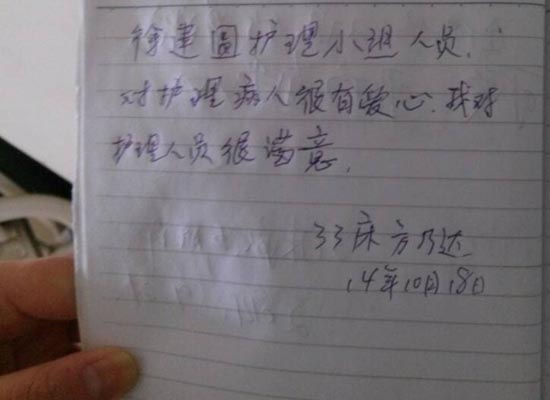 徐建国护理小组人员,
对护理病人很有爱心.我对
护理人员很满意.
33床方乃达
14年10月18日